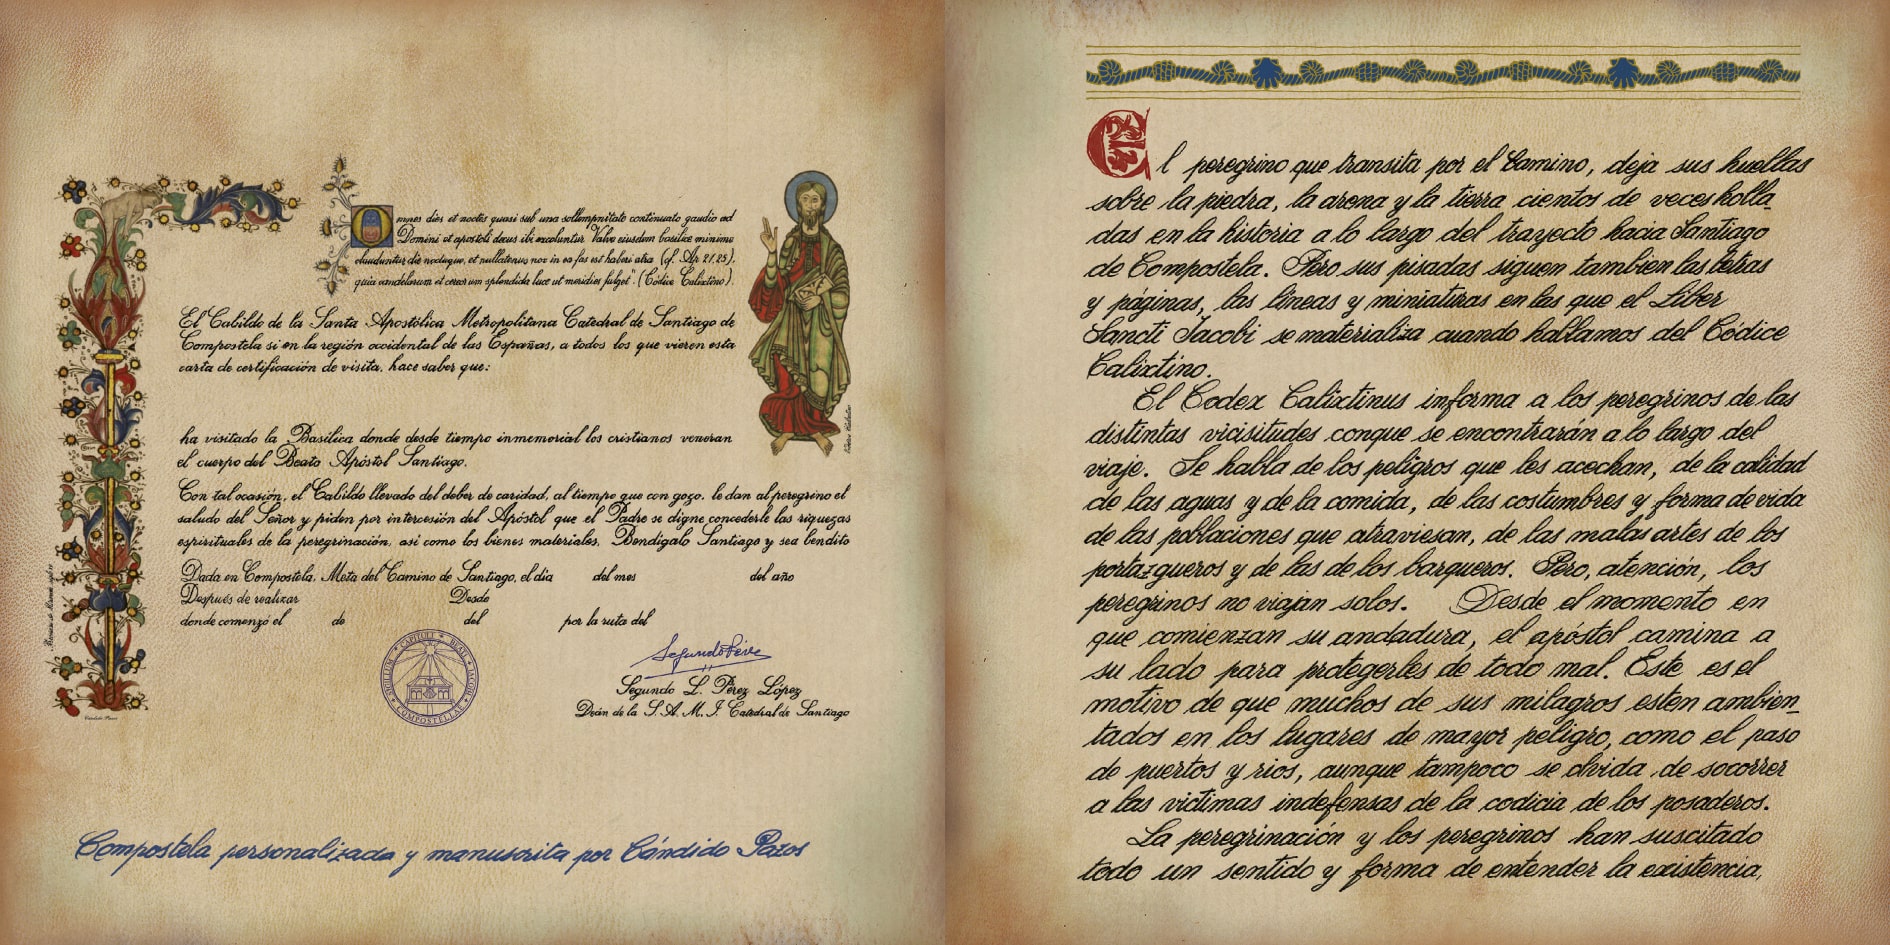 Omnes dies et noctes quasi sub una sollempnitate continuato gaudio ad
Domini et apostoli decus ibi excoluntur. Valve eiusdem basilice minime
clauduntur die noctuque, et nullatenus nox in ea fas est haberi atra (cf. Ap 21,25),
quia candelarum et cereorum splendida luce ut meridies fulget". (Códice Calixtino).
El Cabildo de la Santa Apostólica Metropolitana Catedral de Santiago de
Compostela si en la región occidental de las Españas, a todos los que vieren esta
carta de certificación de visita, hace saber que:
ha visitado la Basílica donde desde tiempo inmemorial los cristianos veneran
el cuerpo del Beato Apóstol Santiago.
Con tal ocasión, el Cabildo llevado del deber de caridad, al tiempo que con gozo, le dan al peregrino el
saludo del Señor y piden por intercesión del Apóstol que el Padre se digne concederle las riquezas
espirituales de la peregrinación, así como los bienes materiales. Bendígalo Santiago y sea bendito
Dada en Compostela, Meta del Camino de Santiago, el día del mes del año
Después de realizar Desde
donde comenzó el de del por la ruta del
SIGILLUM CAPITULI BEATI JACOBI COMPOSTELLAE
Segundo Pérez
Segundo L. Pérez López
Deán de la S. A. M. I. Catedral de Santiago
Cándido Pazos
Compostela personalizada y manuscrita por Cándido Pazos
El peregrino que transita por el Camino, deja sus huellas
sobre la piedra, la arena y la tierra cientos de veces holla_
das en la historia a lo largo del trayecto hacia Santiago
de Compostela. Pero sus pisadas siguen tambien las letras
y páginas, las líneas y miniaturas en las que el Liber
Sancti Jacobi se materializa cuando hablamos del Códice
Calixtino.
El Codex Calixtinus informa a los peregrinos de las
distintas vicisitudes conque se encontrarán a lo largo del
viaje. Se habla de los peligros que les acechan, de la calidad
de las aguas y de la comida, de las costumbres y forma de vida
de las poblaciones que atraviesan, de las malas artes de los
portazgueros y de las de los barqueros. Pero, atención, los
peregrinos no viajan solos. Desde el momento en
que comienzan su andadura, el apóstol camina a
su lado para protegerles de todo mal. Este es el
motivo de que muchos de sus milagros esten ambien_
tados en los lugares de mayor peligro, como el paso
de puertos y rios, aunque tampoco se olvida de socorrer
a las victimas indefensas de la codicia de los posaderos.
La peregrinación y los peregrinos han suscitado
todo un sentido y forma de entender la existencia,